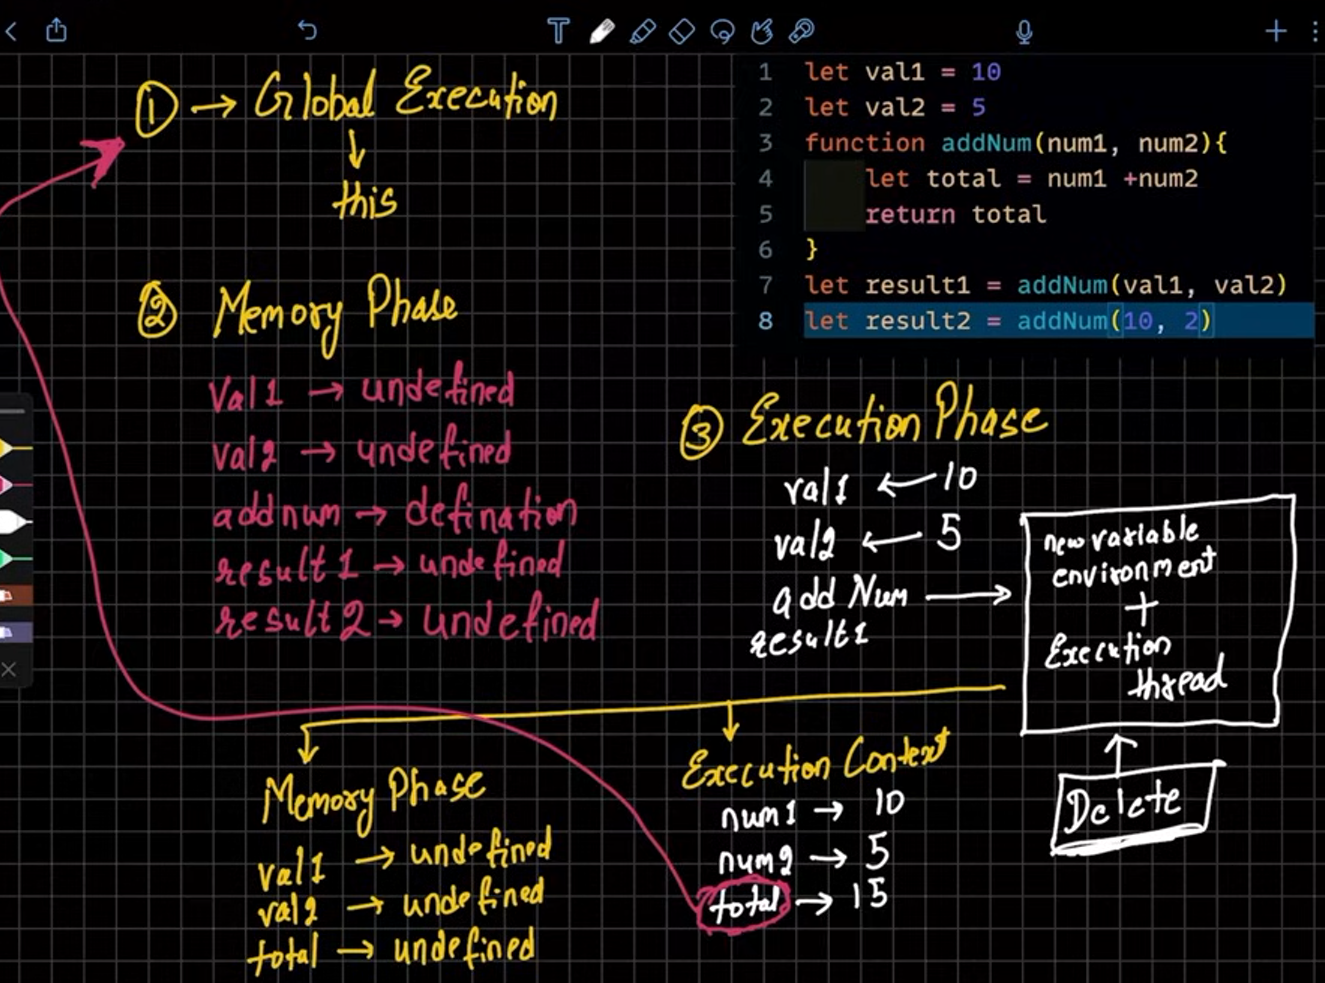 ① → Global Execution
↓
this
② Memory Phase
Val1 → undefined
val2 → undefined
addnum → defination
result1 → undefined
result2 → undefined
1 let val1 = 10
2 let val2 = 5
3 function addNum(num1, num2){
4 let total = num1 +num2
5 return total
6 }
7 let result1 = addNum(val1, val2)
8 let result2 = addNum(10, 2)
③ Execution Phase
val1 ← 10
val2 ← 5
add Num →
result1
new variable
environment
+
Execution
thread
Delete
Memory Phase
val1 → undefined
val2 → undefined
total → undefined
Execution Context
num1 → 10
num2 → 5
total → 15